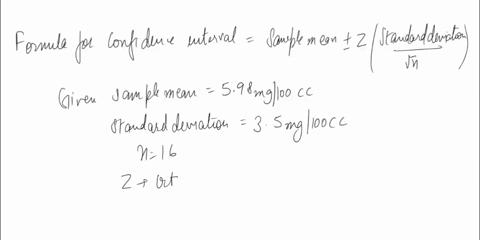 Formula for confidence interval = sample mean ± Z (standard deviation / √n)
Given sample mean = 5.98 mg/100 cc
standard deviation = 3.5 mg/100 cc
n = 16
Z →